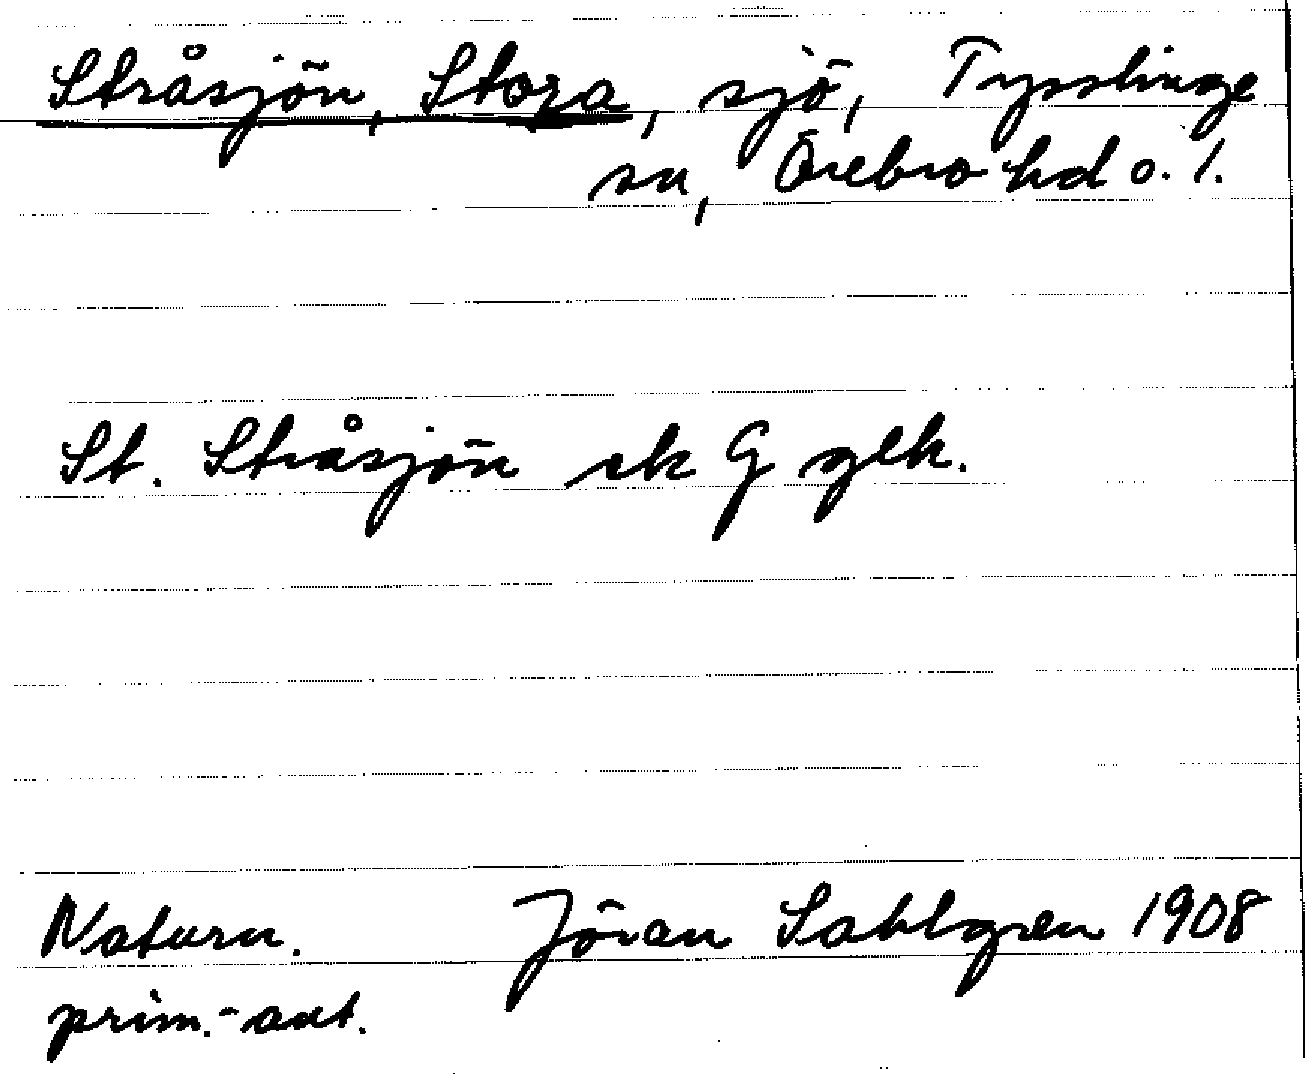 Stråsjön, Stora, sjö, Tysslinge
sn, Örebro hd o. l.
St. Stråsjön rk G gek.
Naturn. Jöran Sahlgren 1908
prim.-ant.